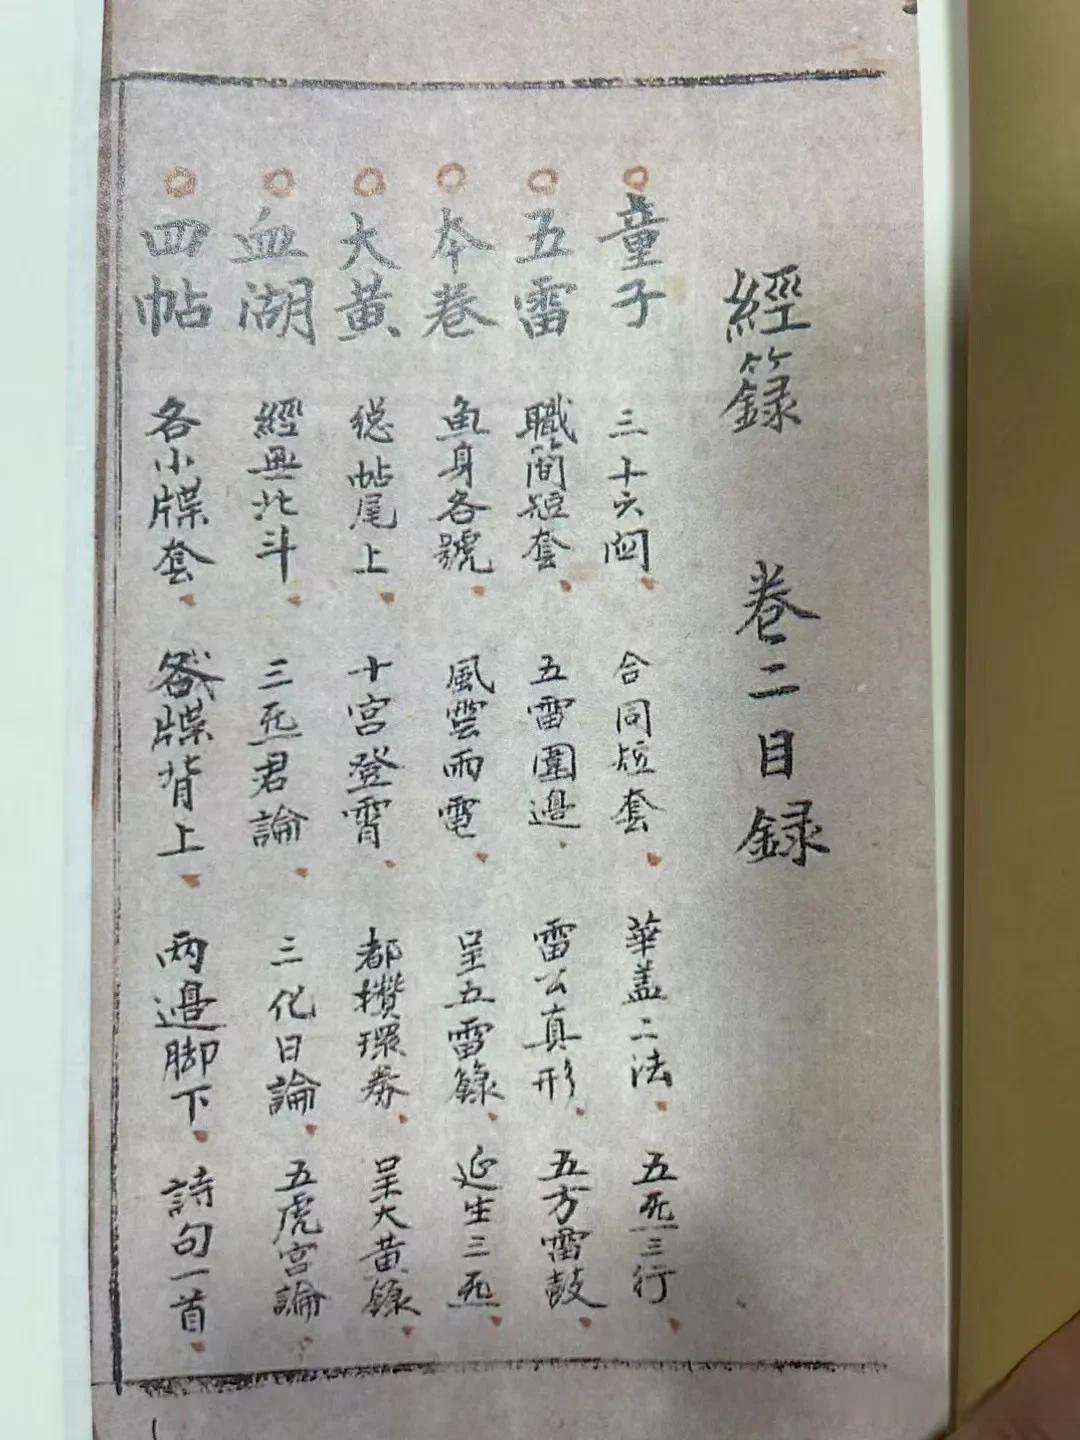 經籙 卷二目録
童子 三十六閎 合同短套、華盖二法、五炁三行、
五雷 職簡短套、五雷圍邊、雷公真形、五方雷鼓、
本卷 魚身各號、風雲雨電、呈五雷籙、延生三炁、
大黄 總帖尾上、十宮登霄、都攢環券、呈大黄籙、
血湖 經與北斗、三炁君論、三化日論、五虎宮論、
四帖 各小牒套、牒背上、两邉脚下、詩句一首、